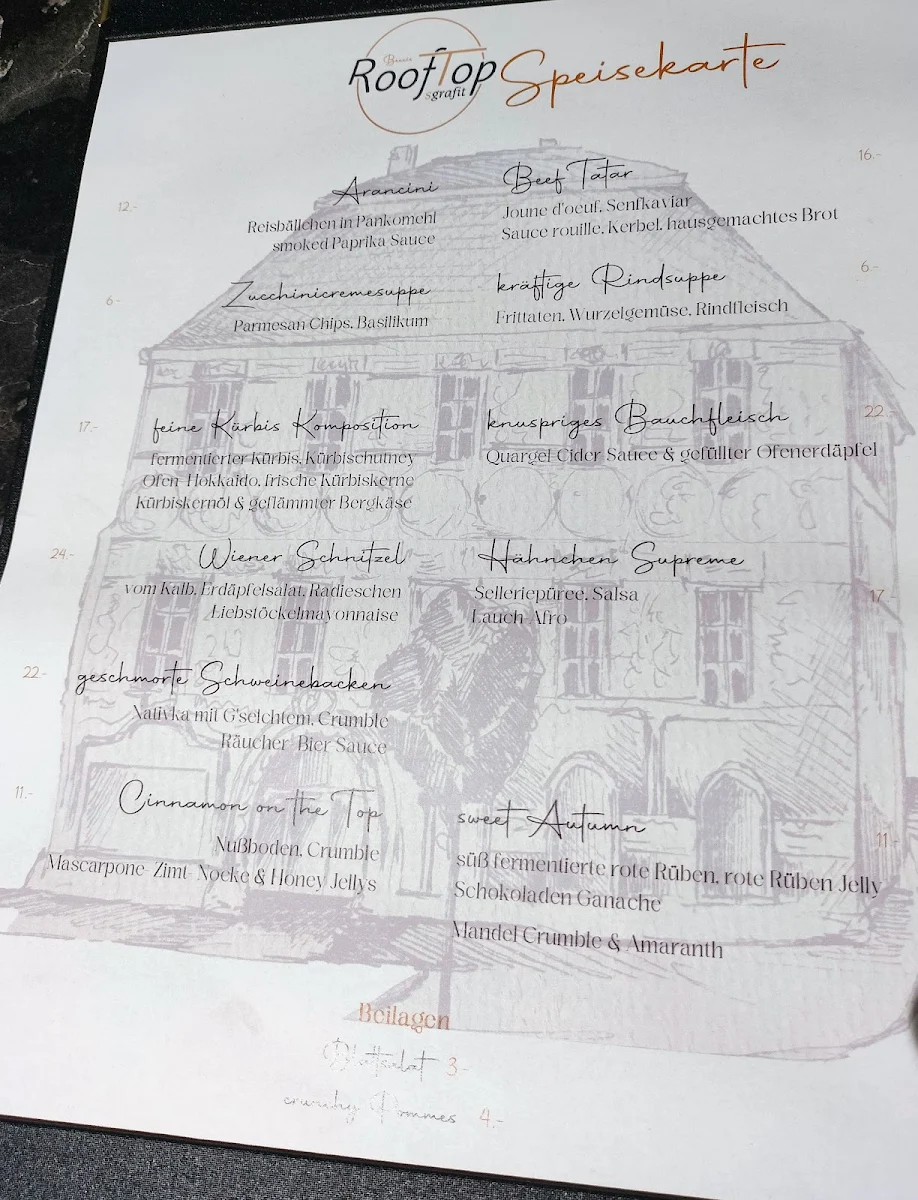 RoofTop
sgrafit
Speisekarte
12.-
Arancini
Reisbällchen in Pankomehl
smoked Paprika Sauce
16.-
Beef Tatar
Joune d'oeuf, Senfkaviar
Sauce rouille, Kerbel, hausgemachtes Brot
6.-
Zucchinicremesuppe
Parmesan Chips, Basilikum
6.-
kräftige Rindsuppe
Frittaten, Wurzelgemüse, Rindfleisch
17.-
feine Kürbis Komposition
fermentierter Kürbis, Kürbischutney
Ofen-Hokkaido, frische Kürbiskerne
Kürbiskernöl & geflämmter Bergkäse
22.-
knuspriges Bauchfleisch
Quargel-Cider Sauce & gefüllter Ofenerdäpfel
24.-
Wiener Schnitzel
vom Kalb, Erdäpfelsalat, Radieschen
Liebstöckelmayonnaise
Hähnchen Supreme
17.-
Selleriepüree, Salsa
Lauch-Afro
22.-
geschmorte Schweinebacken
Nativka mit G'selchtem, Crumble
Räucher-Bier Sauce
11.-
Cinnamon on the Top
Nußboden, Crumble
Mascarpone-Zimt-Nocke & Honey Jellys
sweet Autumn
11.-
süß fermentierte rote Rüben, rote Rüben Jelly
Schokoladen Ganache
Mandel Crumble & Amaranth
Beilagen
Blattsalat 3.-
crunchy Pommes 4.-